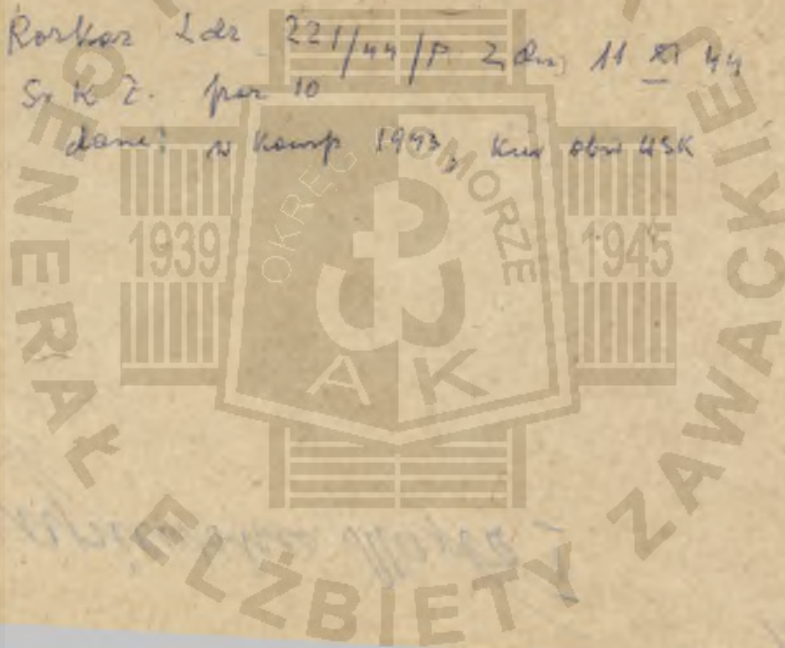 Rozkaz Ldz 221/44/P z dn, 11 XI 44
Sr K Z. poz 10
dane: w konsp 1943, kier obw WSK
1939
1945
OKRĘG POMORZE
AK
GENERAŁ ELŻBIETY ZAWACKIEJ